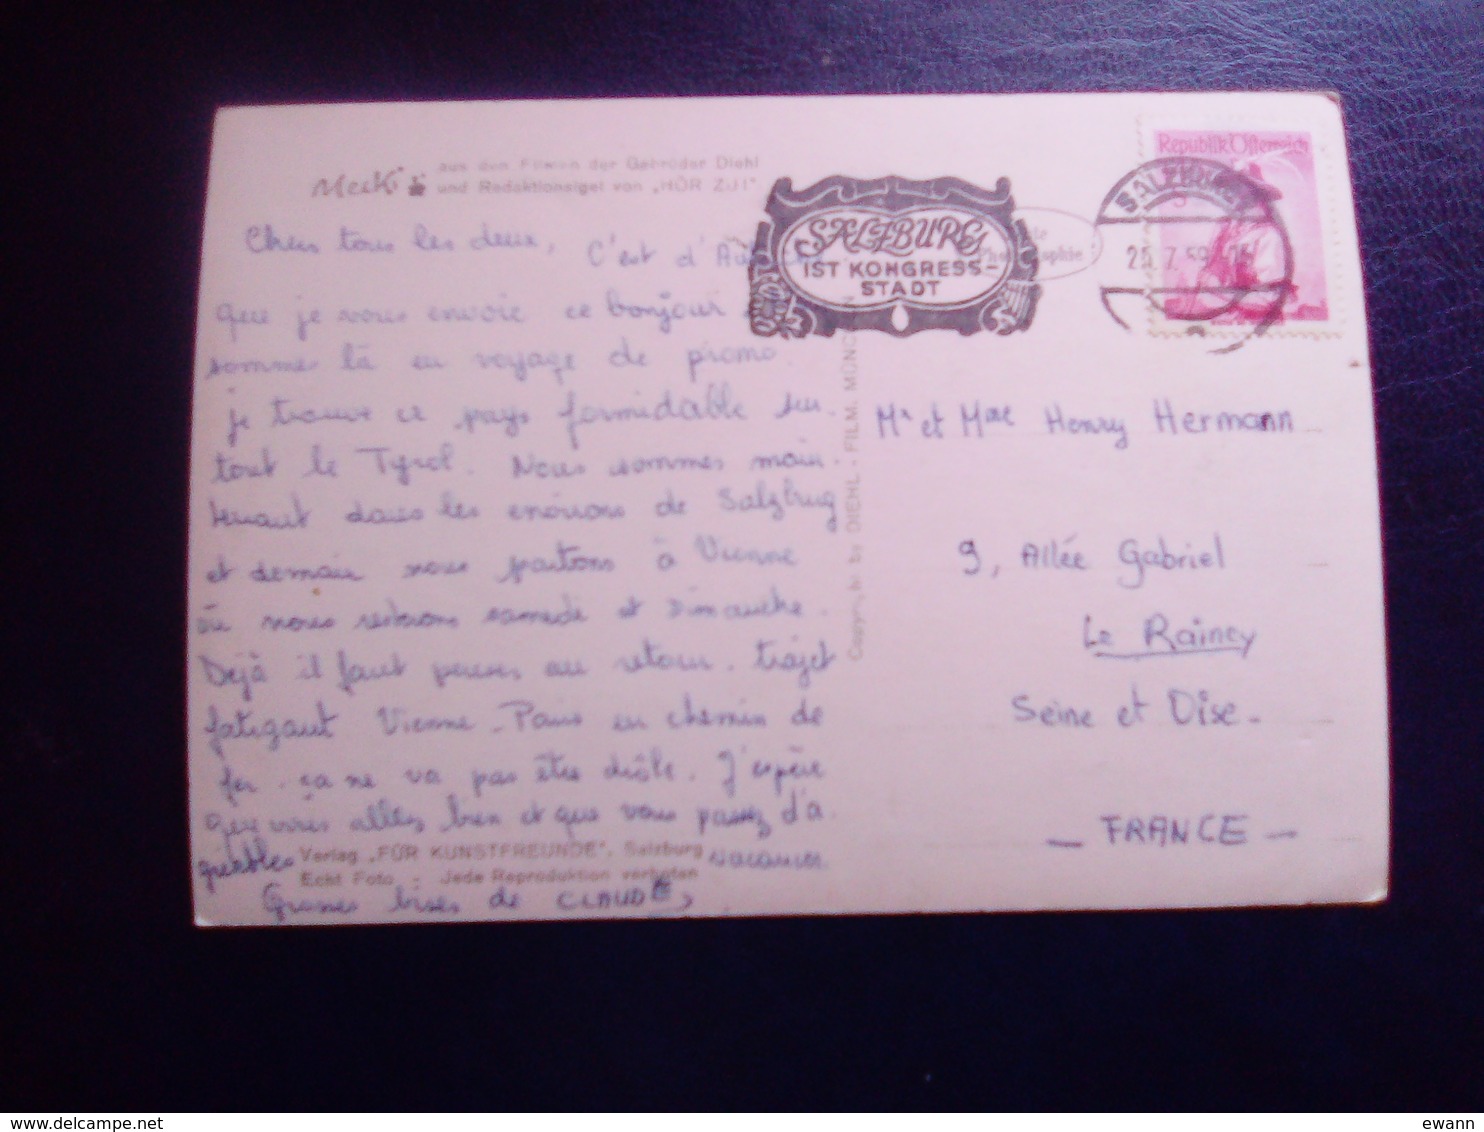 Mecki aus den Filmen der Gebrüder Diehl
und Redaktionsigel von „HÖR ZU!"
Chers tous les deux,
C'est d'Autriche
que je vous envoie ce bonjour
sommes là en voyage de promo.
je trouve ce pays formidable sur-
tout le Tyrol. Nous sommes main-
tenant dans les environs de Salzbrug
et demain nous partons à Vienne
où nous resterons samedi et Dimanche.
Déjà il faut penser au retour. trajet
fatigant Vienne - Paris en chemin de
fer. ça ne va pas être drôle. J'espère
que vous allez bien et que vous passez d'a-
gréables vacances.
Grosses bises de CLAUDE,
Verlag „FÜR KUNSTFREUNDE", Salzburg
Echt Foto : Jede Reproduktion verboten
Copyright by DIEHL - FILM. MÜNCHEN
SALZBURG
IST KONGRESS-
STADT
SALZBURG
7.59
Republik Österreich
Mr et Mme Henry Hermann
9, Allée Gabriel
Le Raincy
Seine et Oise -
- FRANCE -
ewann